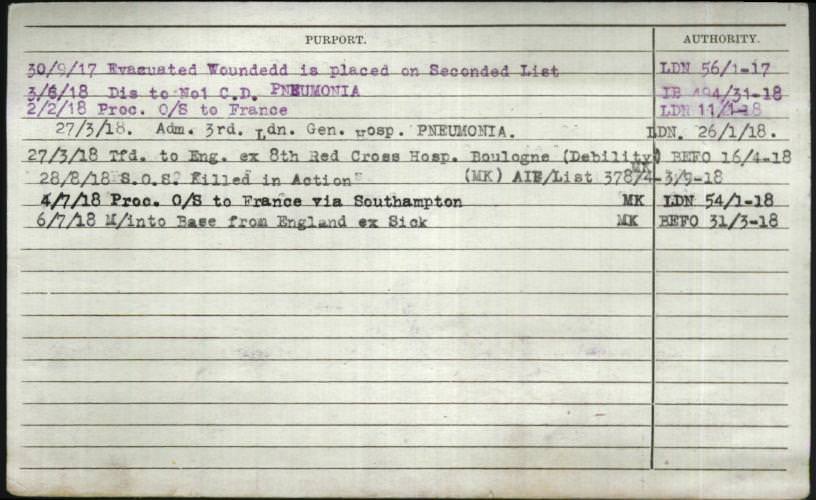 PURPORT. AUTHORITY.
30/9/17 Evacuated Woundedd is placed on Seconded List LDN 56/1-17
3/6/18 Dis to No1 C.D. PNEUMONIA IB 494/31-18
2/2/18 Proc. O/S to France LDN 11/1-18
27/3/18. Adm. 3rd. Ldn. Gen. Hosp. PNEUMONIA. LDN. 26/1/18.
27/3/18 Tfd. to Eng. ex 8th Red Cross Hosp. Boulogne (Debility) MK BEFO 16/4-18
28/8/18 S.O.S. "Killed in Action" (MK) AIF/List 378/4-3/9-18
4/7/18 Proc. O/S to France via Southampton MK LDN 54/1-18
6/7/18 M/into Base from England ex Sick MK BEFO 31/3-18